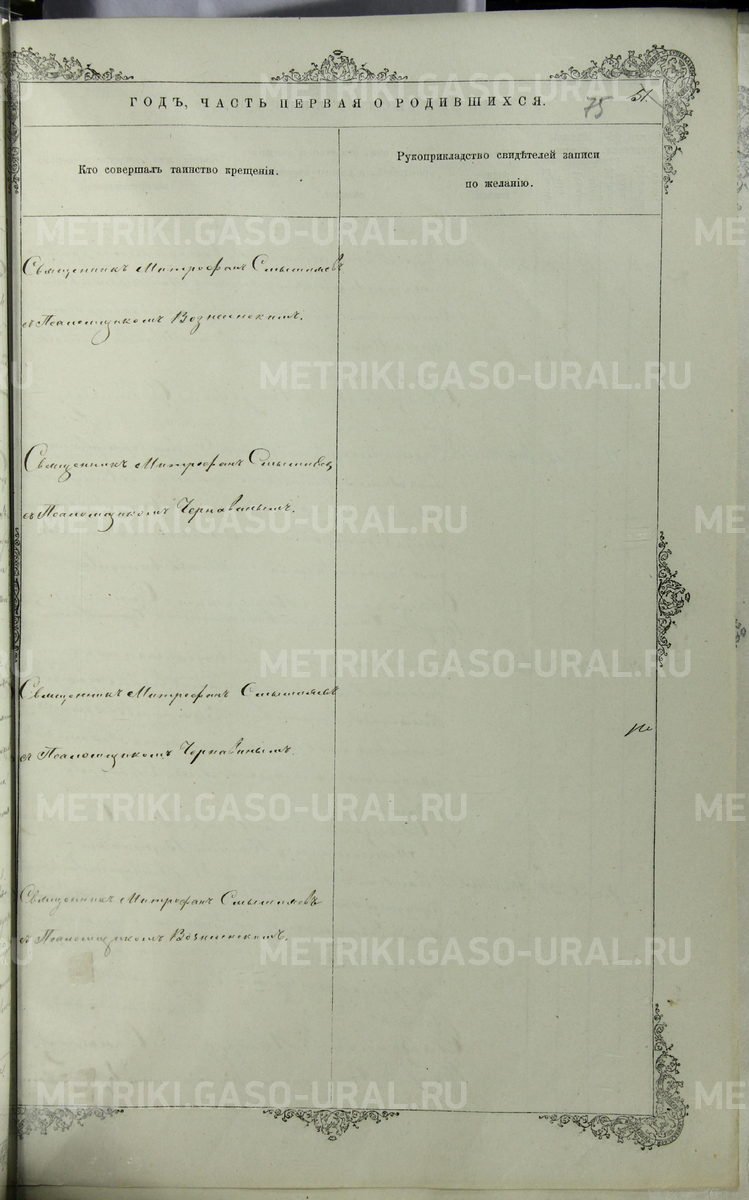 ГОДЪ, ЧАСТЬ ПЕРВАЯ О РОДИВШИХСЯ.
75 51.
Кто совершалъ таинство крещенія.
Рукоприкладство свидѣтелей записи
по желанію.
Священникъ Митрофанъ Смышляевъ
съ Псаломщикомъ Вознесенскимъ.
Священникъ Митрофанъ Смышляевъ
съ Псаломщикомъ Чернавинымъ.
Священникъ Митрофанъ Смышляевъ
съ Псаломщикомъ Чернавинымъ.
Священникъ Митрофанъ Смышляевъ
съ Псаломщикомъ Вознесенскимъ.
METRIKI.GASO-URAL.RU